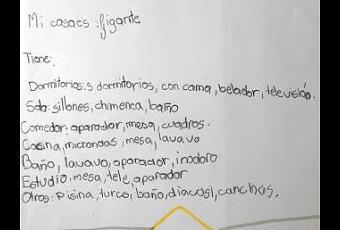 Mi casacs : figante
Tiene:
Dormitorios: 5 dormitorios, con cama, belador, televisión.
Sala: sillones, chimenea, baño
Comedor: aparador, mesa, cuadros.
Cocina, microndas, mesa, lavavo
Baño, lavavo, aparador, inodoro
Estudio, mesa, tele, aparador
Otros: Pisina, turco, baño, canchas.